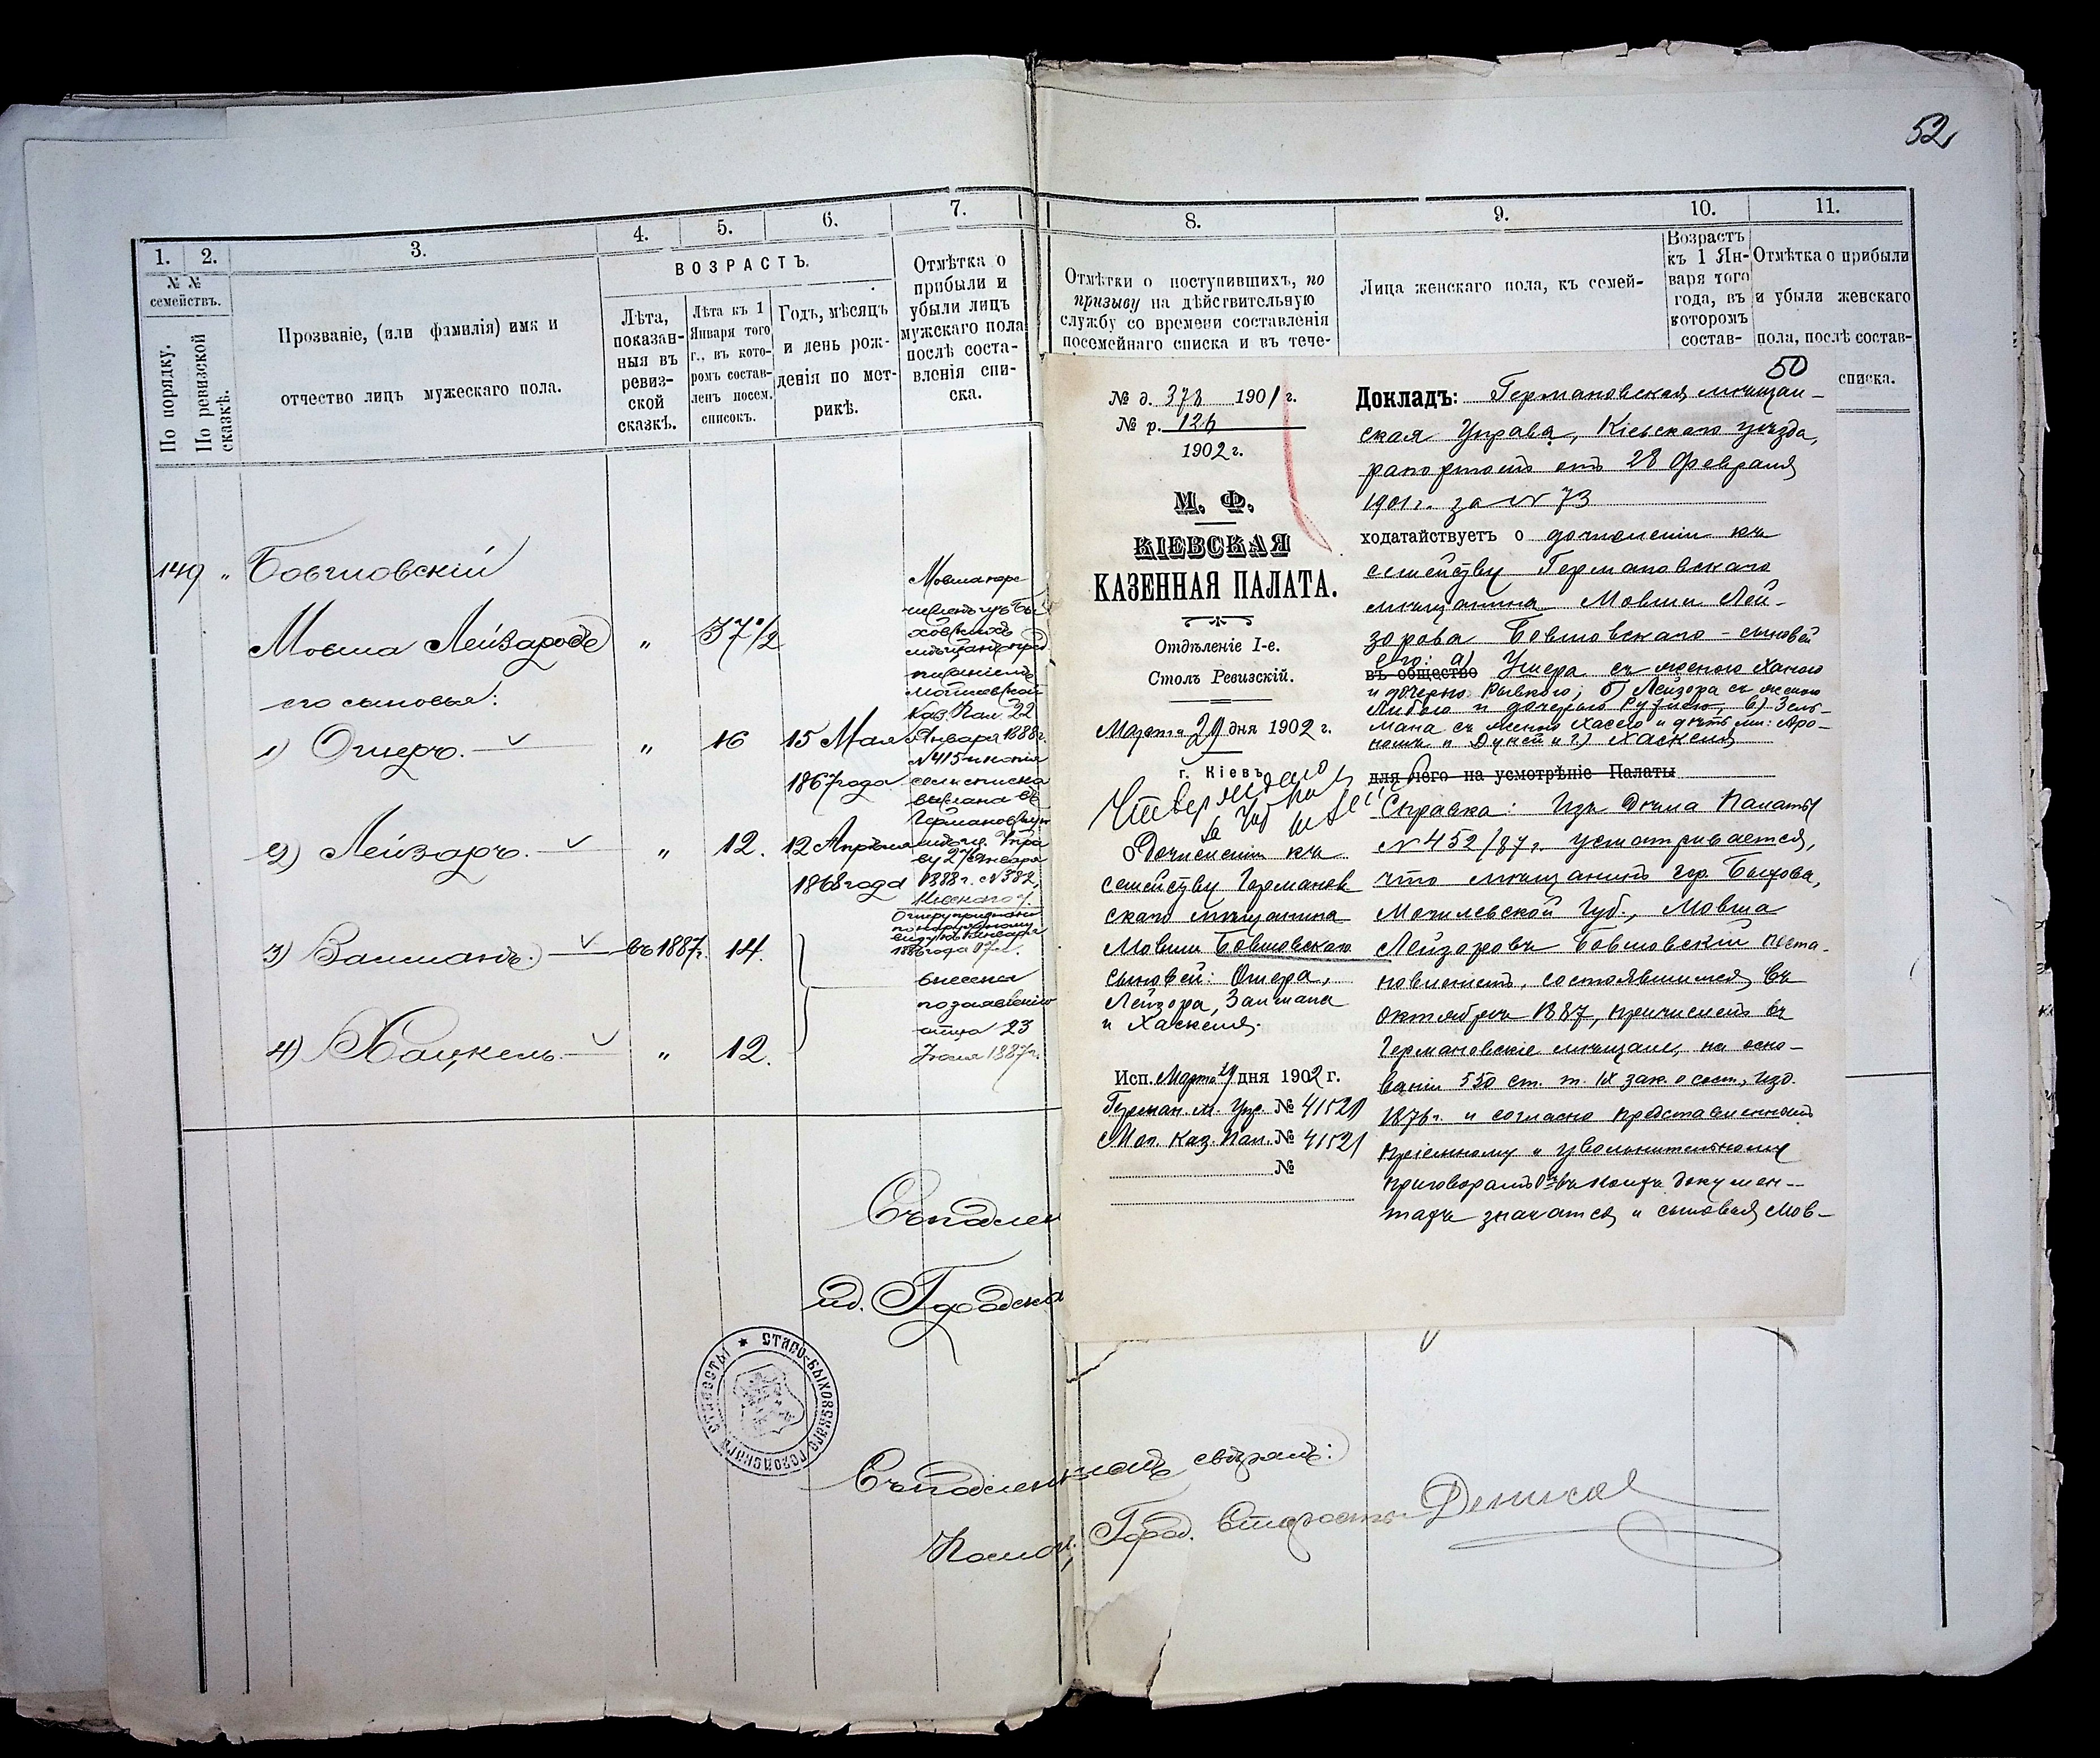 52
1.
2.
3.
4.
5.
6.
7.
№ №
семействъ.
По порядку.
По ревизской сказкѣ.
Прозваніе, (или фамилія) имя и
отчество лицъ мужескаго пола.
ВОЗРАСТЪ.
Лѣта,
показан-
ныя въ
ревиз-
ской
сказкѣ.
Лѣта къ 1
Января того
г., въ кото-
ромъ состав-
ленъ посем.
списокъ.
Годъ, мѣсяцъ
и день рож-
денія по мет-
рикѣ.
Отмѣтка о
прибыли и
убыли лицъ
мужскаго пола
послѣ соста-
вленія спи-
ска.
149 "
Мовша Лейзаровъ " 37 1/2
его сыновья:
1) Ошеръ. " 16 15 Мая
1867 года
2) Лейзаръ. " 12. 12 Апрѣля
1868 года
3) Залманъ. въ 1887г. 14.
4) Хацкель. " 12.
Каз. Пал. 22
Января 1888г.
№ 415 и копія
сем. списка
выслана въ
Германовскую
мѣщ. Упра
ву 27 Января
1888 г. № 382,
внесены
по заявленію
отца 23
Іюля 1887г.
СТАРО-БЫХОВСКАГО ГОРОДСКАГО СТАРОСТЫ
Съ подлиннымъ свѣрялъ:
Помощ. Город. Старосты
8.
9.
10.
11.
Отмѣтки о поступившихъ, по
призыву на дѣйствительную
службу со времени составленія
посемейнаго списка и въ тече-
Лица женскаго пола, къ семей-
Возрастъ
къ 1 Ян-
варя того
года, въ
которомъ
состав-
Отмѣтка о прибыли
и убыли женскаго
пола, послѣ состав-
списка.
50
№ д. 378 1901 г.
№ р. 126
1902 г.
М. Ф.
КІЕВСКАЯ
КАЗЕННАЯ ПАЛАТА.
Отдѣленіе I-е.
Столъ Ревизскій.
Марта 29 дня 1902 г.
г. Кіевъ
О дочисленіи къ
семейству Германов
скаго мѣщанина
Мовши Бовшовскаго
сыновей: Ошера,
Лейзора, Залмана
и Хаскеля.
Исп. Марта 29 дня 1902 г.
Герман. м. Упр. № 41520
Мог. Каз. Пал. № 41521
№
Докладъ: Германовская мѣщан-
ская Управа, Кіевскаго уѣзда,
рапортомъ отъ 28 Февраля
1901 г. за № 73
ходатайствуетъ о дочисленіи къ
семейству Германовскаго
мѣщанина Мовши Лей-
зорова Бовшовскаго - сыновей
его: а)
въ общество Ушера съ женою Ханою
и дочерью Рывкою; б) Лейзора съ женою
Либою и дочерью Рузиею, в) Зель-
мана съ женою Хасею и дѣтьми: Аро-
номъ и Дунею и г) Хаскеля
для него на усмотрѣніе Палаты
Справка: Изъ дѣла Палаты
№ 452/87 г. усматривается,
что мѣщанинъ гор. Быхова,
Могилевской Губ., Мовша
Лейзоровъ Бовшовскій поста-
новленіемъ, состоявшимся въ
октябрѣ 1887, причисленъ въ
Германовскіе мѣщане, на осно-
ваніи 550 ст. т. IX зак. о сост., изд.
1876 г. и согласно представленнымъ
пріемному и увольнительному
приговорамъ. Въ коихъ докумен-
тахъ значатся и сыновья Мов-